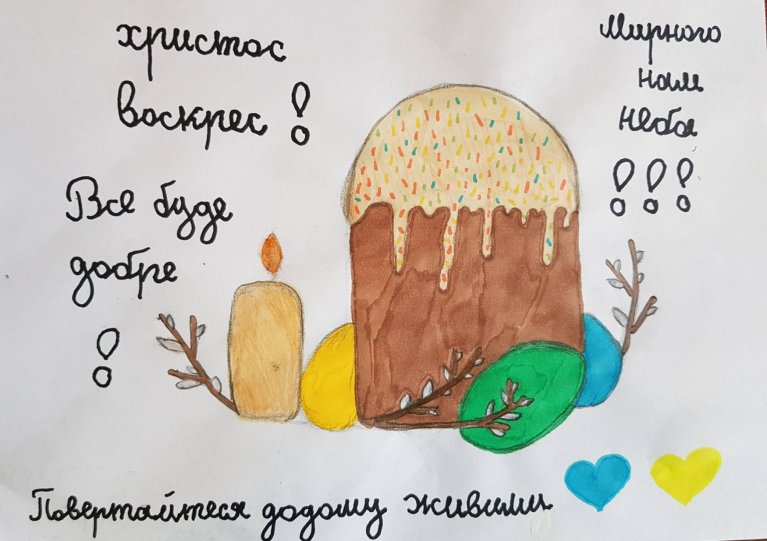 христос
воскрес!
Мирного
нам
неба
!!!
Все буде
добре
!
Повертайтеся додому живими